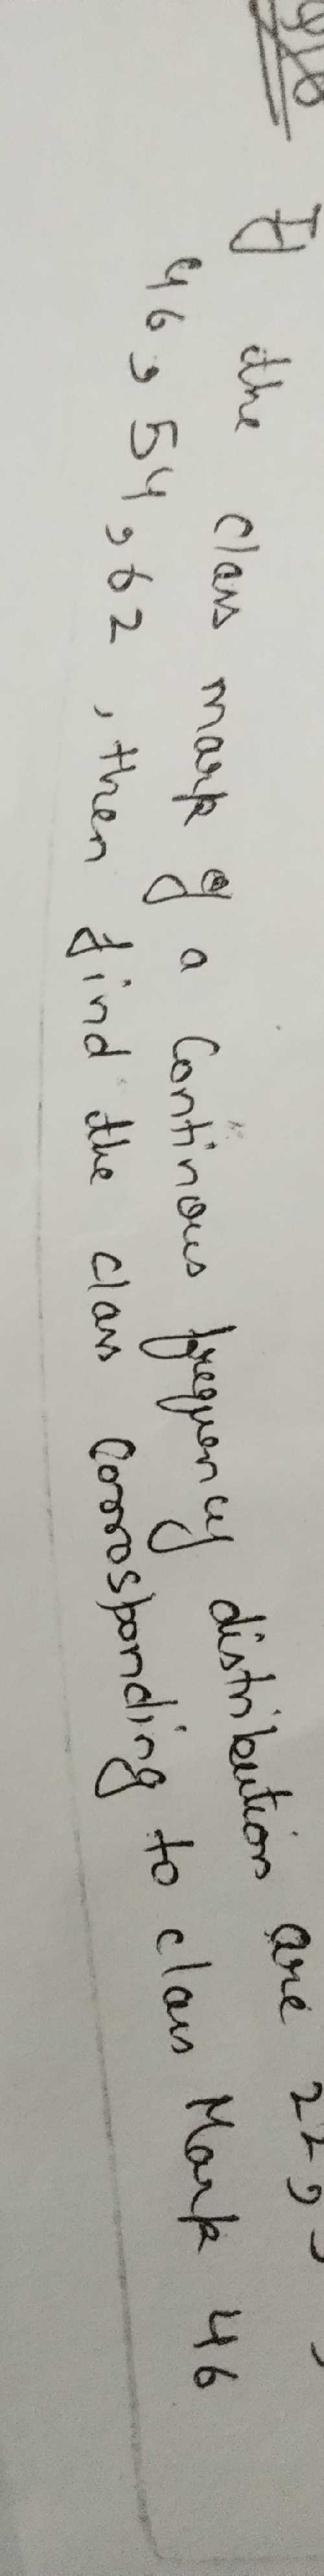 If the class mark of a Continous frequency distribution are 22,
46, 54, 62, then find the class Corrosponding to class Mark 46